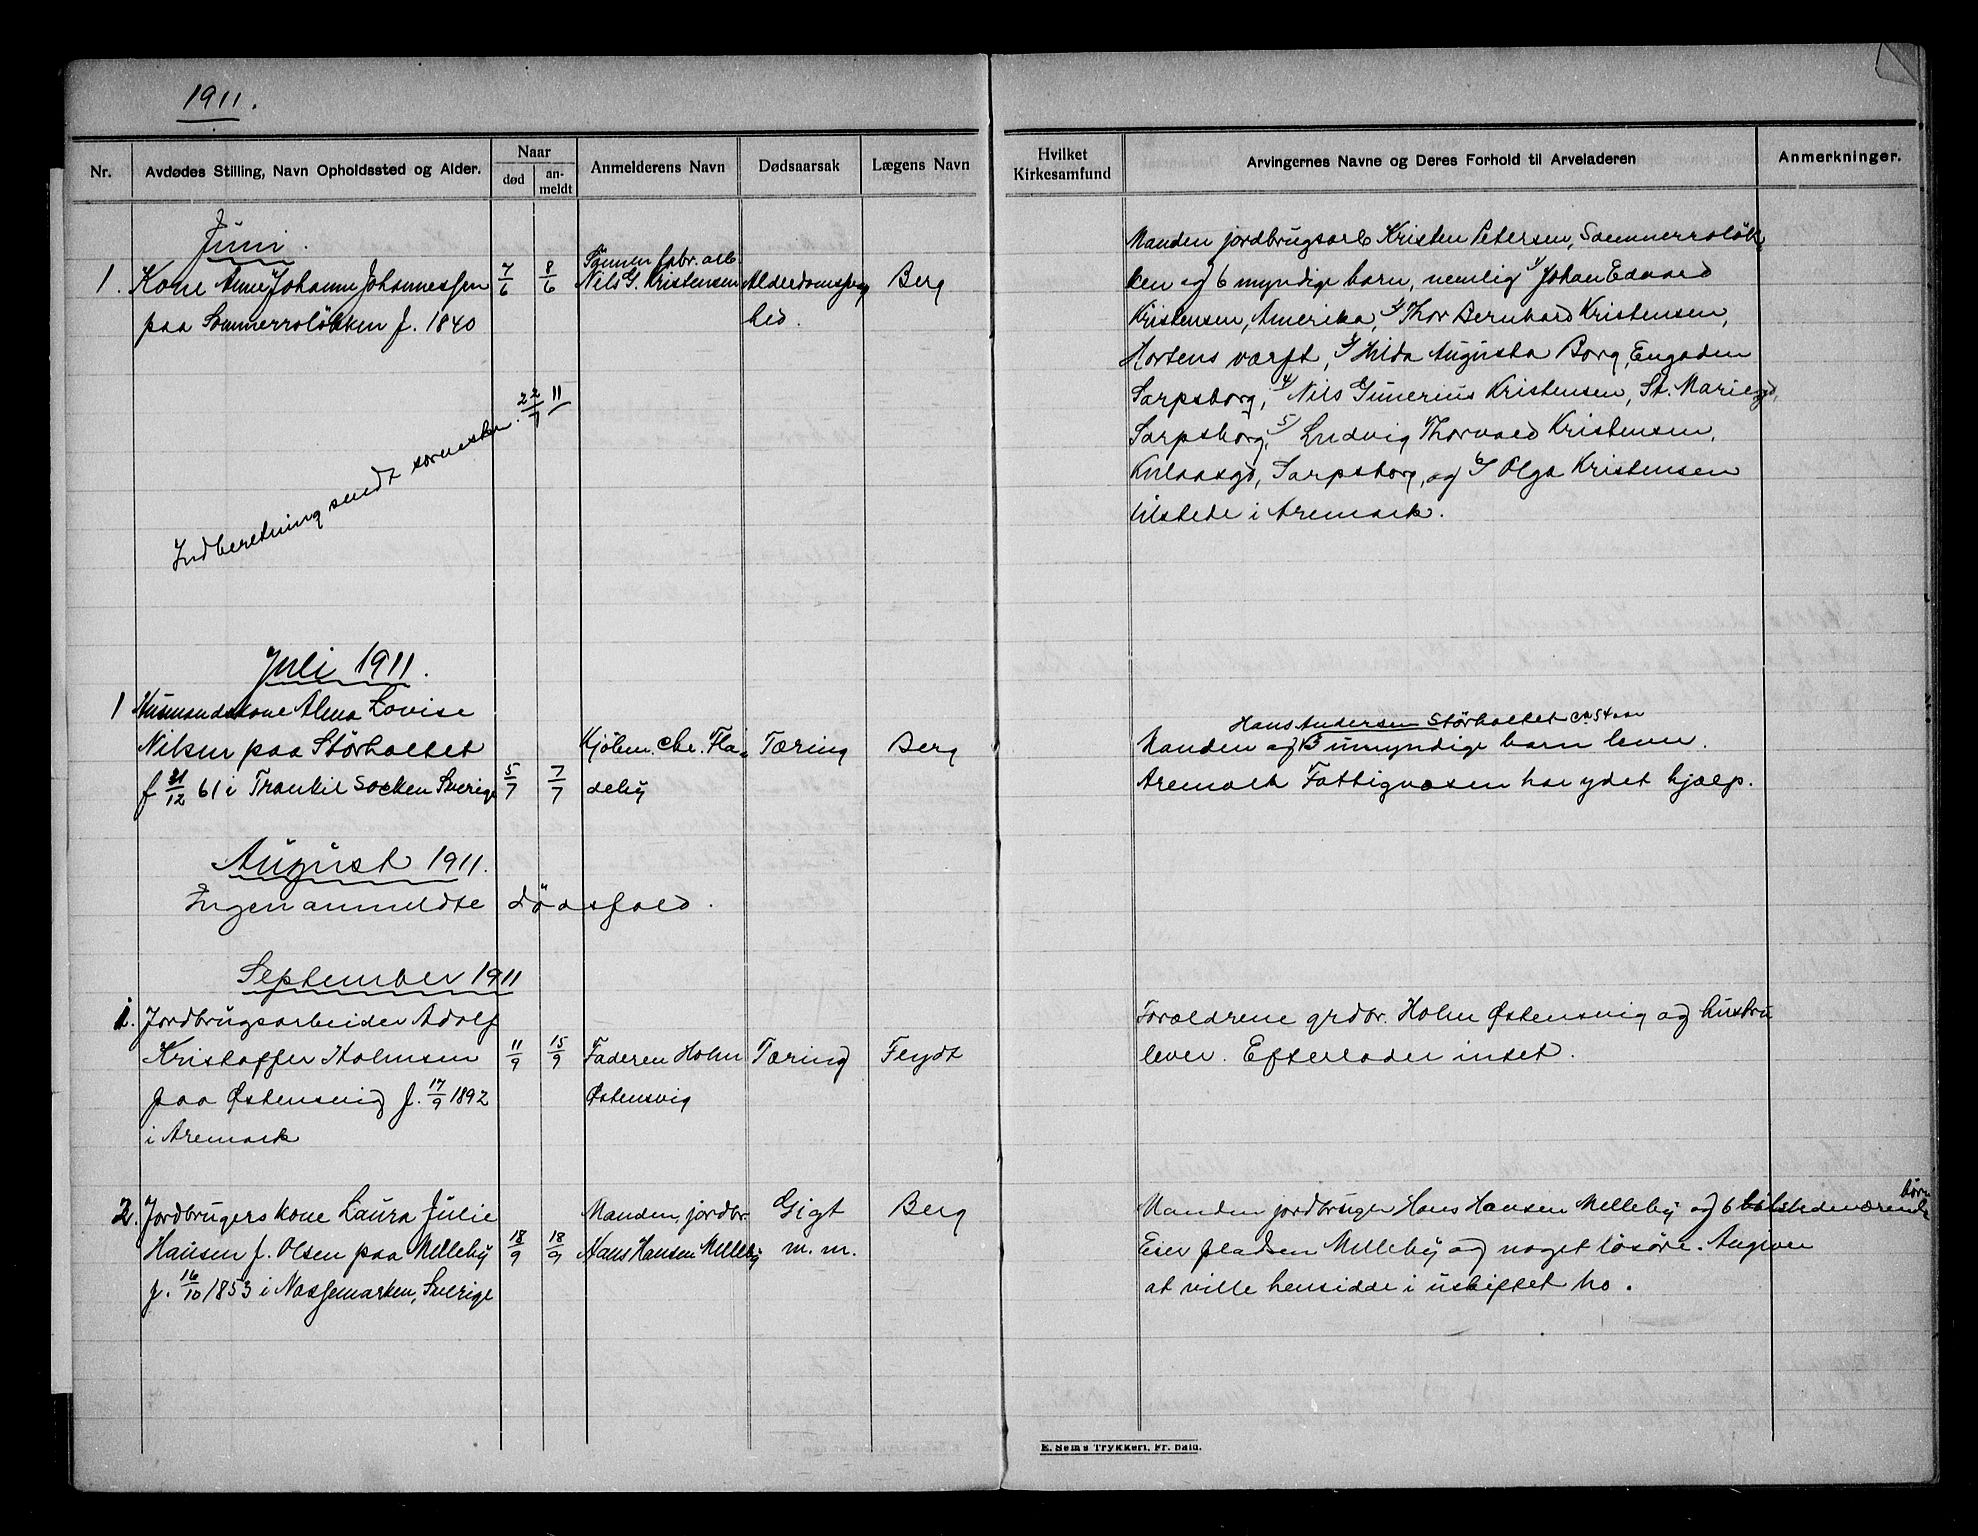 1911.
Nr.
Avdødes Stilling, Navn Opholdssted og Alder.
Naar
død
an-
meldt
Anmelderens Navn
Dødsaarsak
Lægens Navn
Hvilket
Kirkesamfund
Arvingernes Navne og Deres Forhold til Arveladeren
Anmerkninger.
Juni.
1. Kone Anne Johanne Johannessen
paa Sommerroløkken f. 1840
7/6
8/6
Sønnen fabr. arb.
Nils G. Kristensen
Alderdomssvag
hed.
Berg
Manden jordbrugsarb Kristen Petersen, Sommerroløk
ken og 6 myndige barn, nemlig 1/ Johan Edvard
Kristensen, Amerika, 2/ Thor Bernhard Kristensen,
Hortens værft, 3/ Hilda Augusta Borg, Engaden
Sarpsborg, 4/ Nils Gunerius Kristensen, St. Mariegd,
Sarpsborg, 5/ Ludvig Thorvald Kristensen,
Kulaasgd, Sarpsborg, og 6/ Olga Kristensen
tilstede i Aremark.
Indberetning sendt sorensk. 22/7 11
Juli 1911.
1 Husmandskone Alma Lovise
Nilsen paa Störholtet
f 31/12 61 i Trankil Socken Sverige
5/7
7/7
Kjöbm. Chr. Fla-
deby
Tæring
Berg
Hans Andersen Störholtet ca 54 aar
Manden og 3 umyndige barn lever.
Aremark Fattigvæsen har ydet hjælp.
August 1911.
Ingen anmeldte dödsfald.
September 1911
1. Jordbrugsarbeider Adolf
Kristoffer Holmsen
paa Østensvig f. 17/9 1892
i Aremark
11/9
15/9
Faderen Holm
Østensvig
Tæring
Feydt
Forældrene grdbr. Holm Østensvig og hustru
lever. Efterlader intet.
2. Jordbrugerskone Laura Julie
Hansen f. Olsen paa Melleby
f. 16/10 1853 i Nossemarken, Sverige
18/9
18/9
Manden, jordbr.
Hans Hansen Melleby
Gigt
m. m.
Berg
Manden jordbruger Hans Hansen Melleby og 6 tilstedeværende börn
Eier pladsen Melleby og noget lösöre. Angiver
at ville hensidde i uskiftet bo.
E. Sem's Trykkeri, Fr. hald.